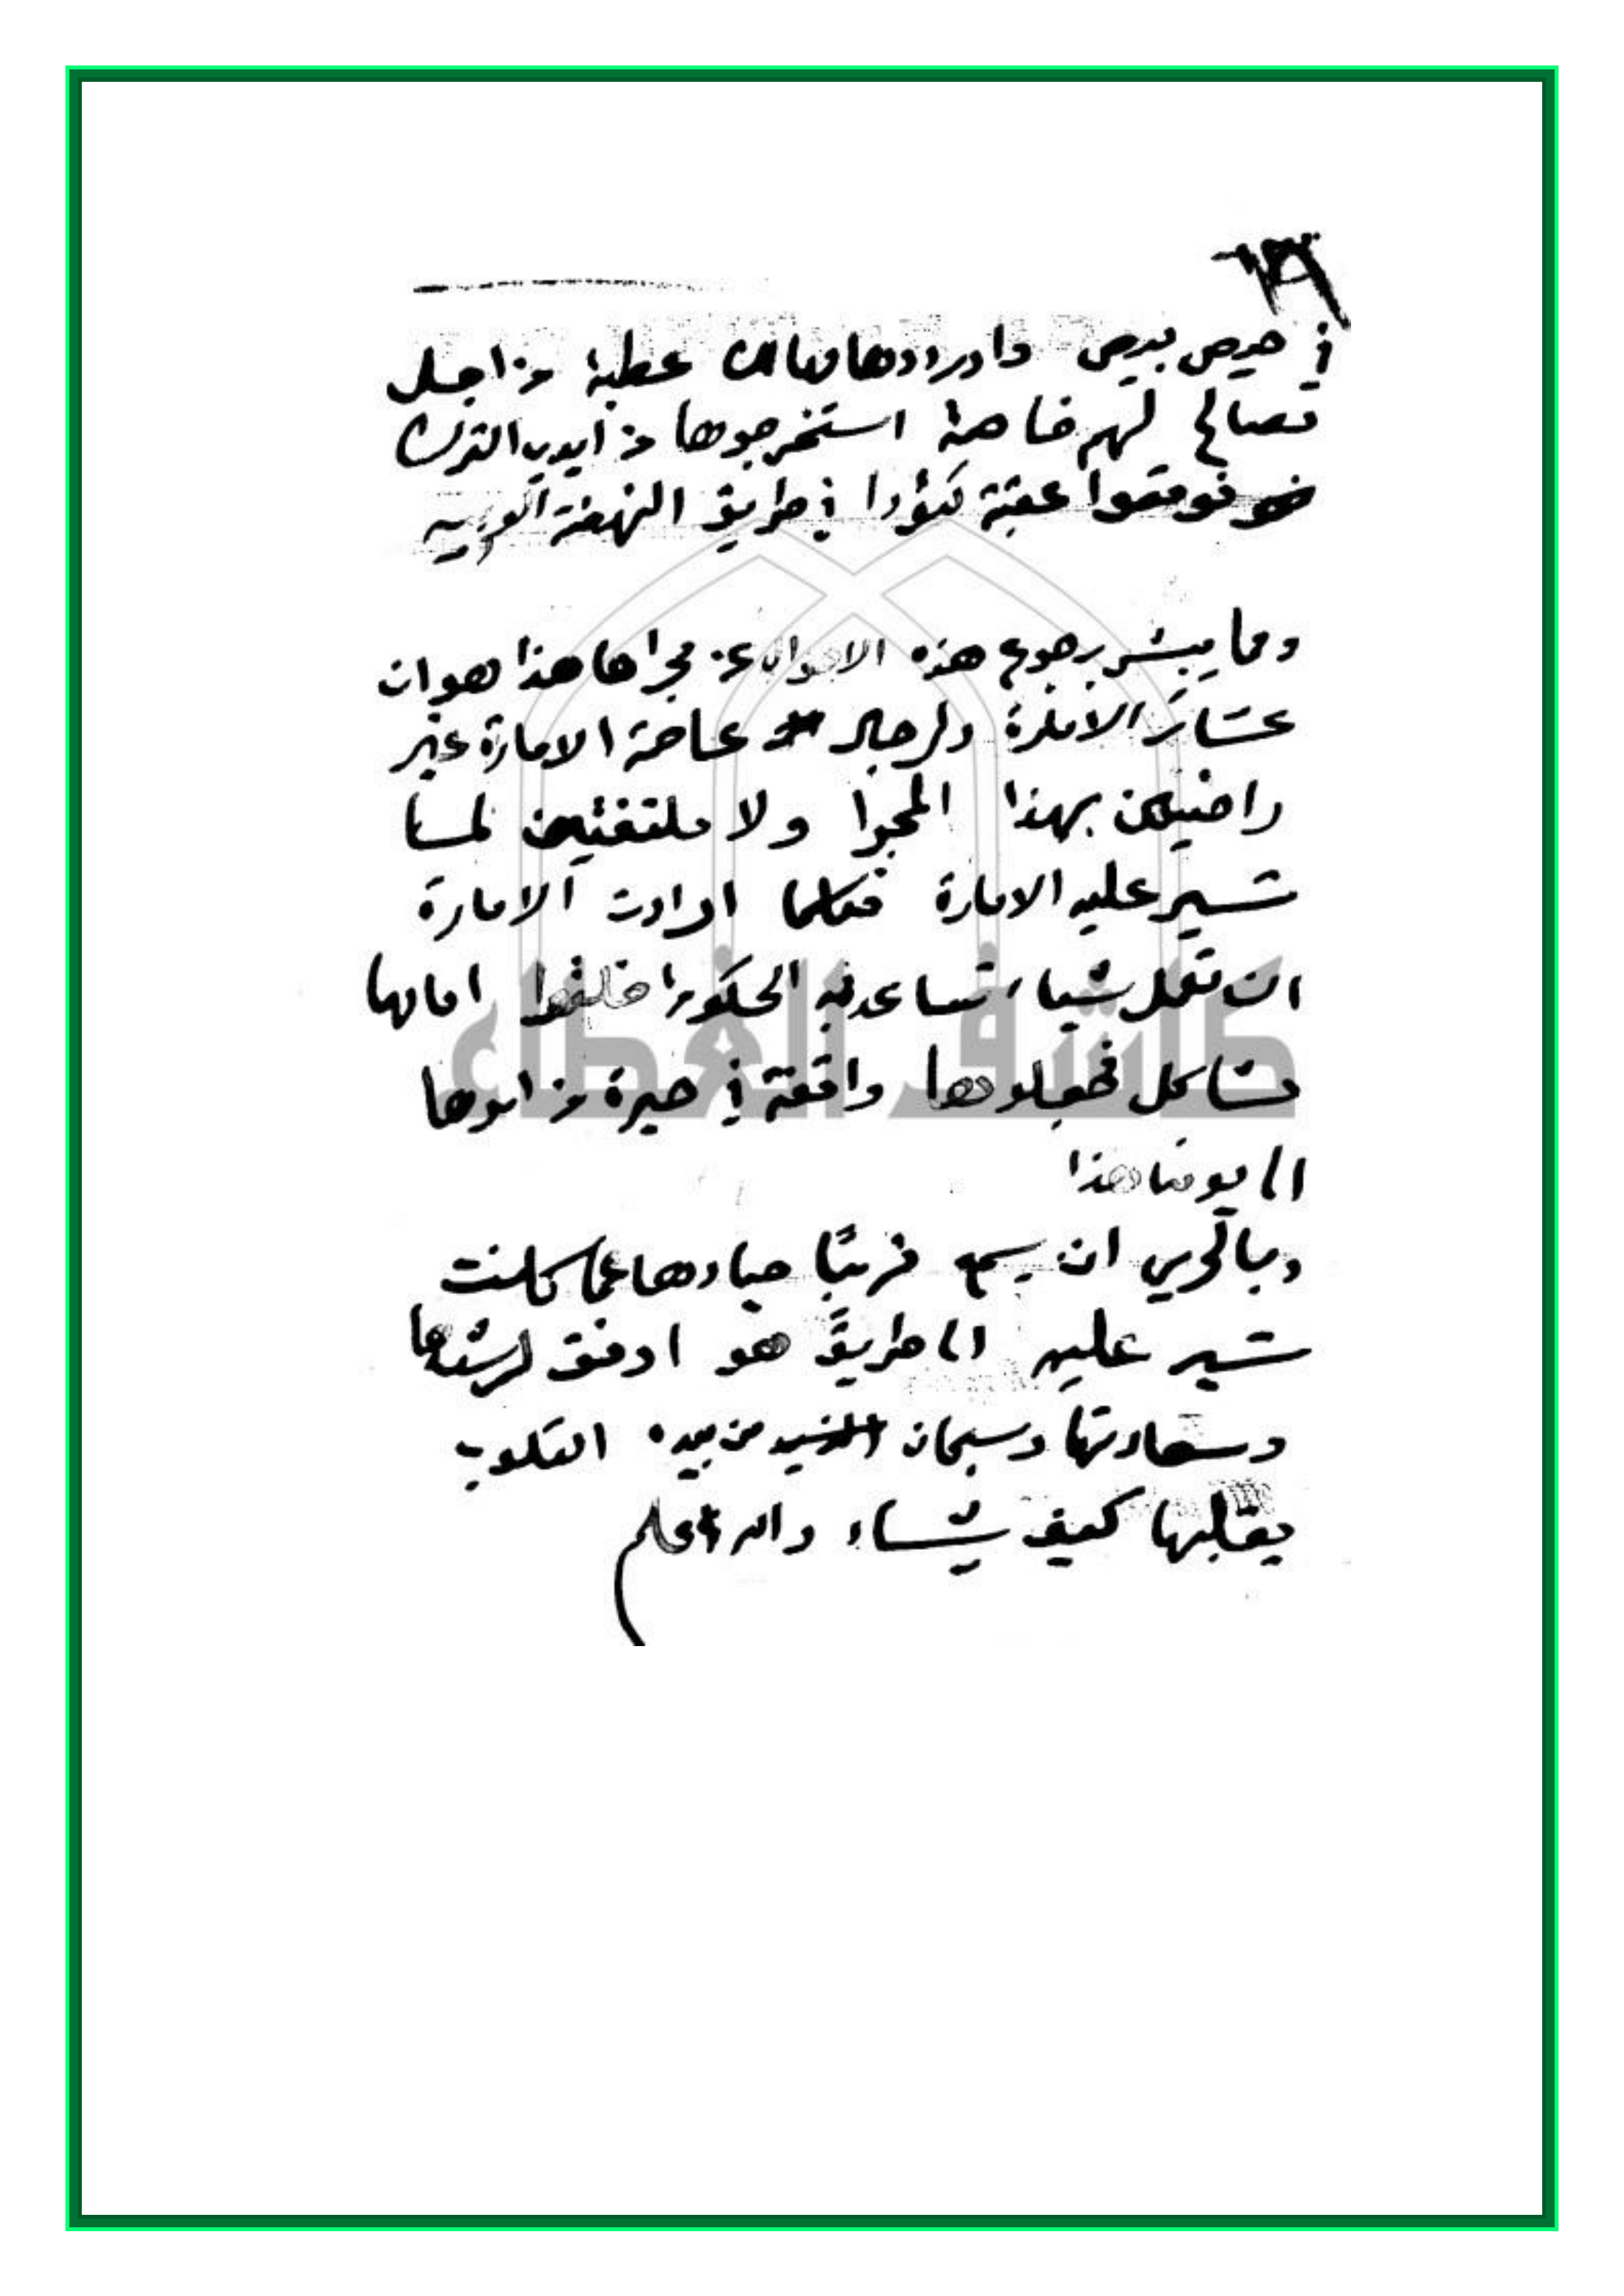 في حيص بيص واوردوها مهالك عظيمة من اجل
مصالح لهم خاصة استخرجوها من ايدي الترك
فوقفوا عقبة كئودا في طريق النهضة العربيه
ومما يبشر برجوع هذه الاحوال عن مجراها هذا هو ان
عشائر الامارة ورجال عاصمة الامارة غير
راضيين بهذا المجرا ولا ملتفتين لما
تسير عليه الامارة فكلما ارادت الامارة
ان تعمل شيا، تساعد به الحكومة خلقوا امامها
مشاكل فجعلوها واقعة في حيرة من امرها
الى يومنا هذا
وبالحري ان يسمع قريبًا حيادها عما كانت
تسير عليه الى طريقً هو اوفق لرشدها
وسعادتها وسبحان من بيده القلوب
يقلبها كيف يشاء والله اعلم
كاشف الغطاء